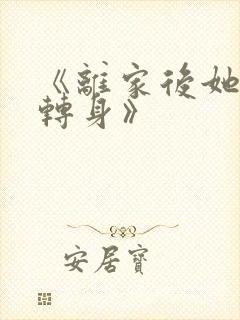 《離家後她
轉身》
安居寶